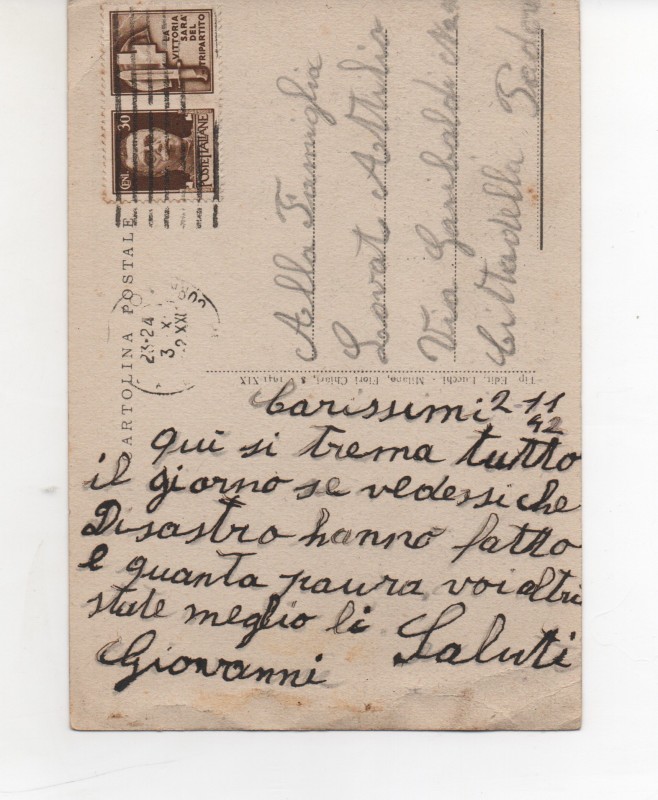 LA
VITTORIA
SARA'
DEL
TRIPARTITO
CENT. 30
POSTE ITALIANE
CARTOLINA POSTALE
23-24
3 X
Alla Famiglia
Lovat Attilio
Via Garibaldi
Cittadella
Tip. Edit. Lucchi - Milano, Fiori Chiari, 8 1941-XIX
Carissimi 2-11
42
qui si trema tutto
il giorno se vedessi che
Disastro hanno fatto
e quanta paura voi altri
state meglio li Saluti
Giovanni